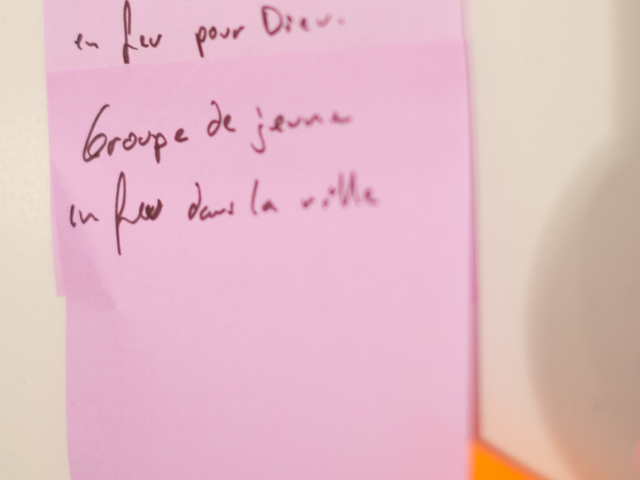 en feu pour Dieu.
Groupe de jeune
en feu dans la ville